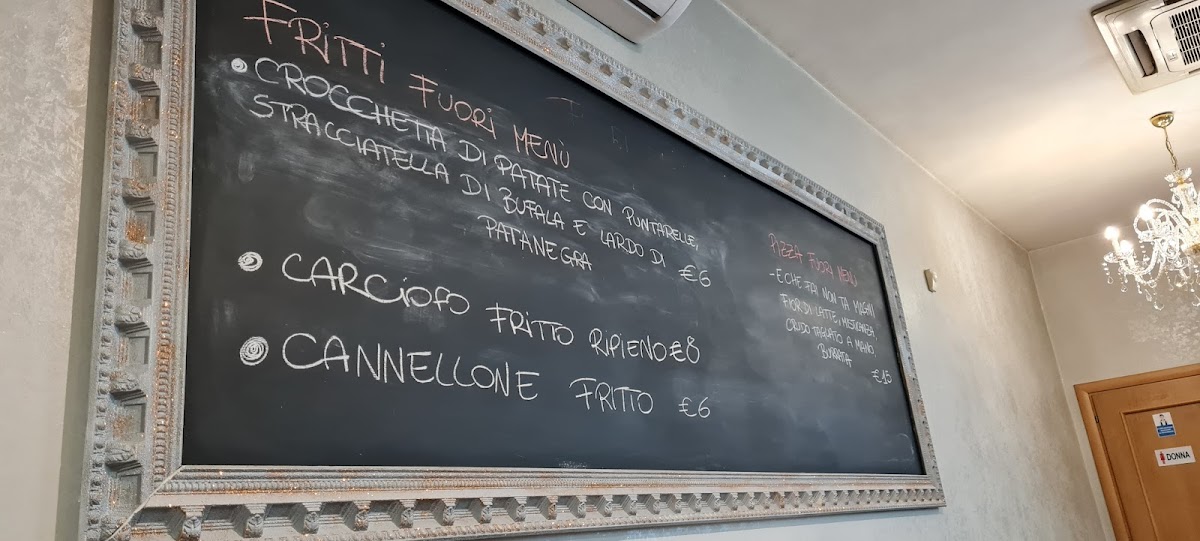 FRITTI FUORI MENÙ
CROCCHETTA DI PATATE CON PUNTARELLE,
STRACCIATELLA DI BUFALA E LARDO DI
PATANEGRA €6
CARCIOFO FRITTO RIPIENO €8
CANNELLONE FRITTO €6
PIZZA FUORI MENÙ
- E CHE FAI NON TA MAGNI
FIOR DI LATTE, MISTICANZA
CRUDO TAGLIATO A MANO
BURRATA
€15
DONNA